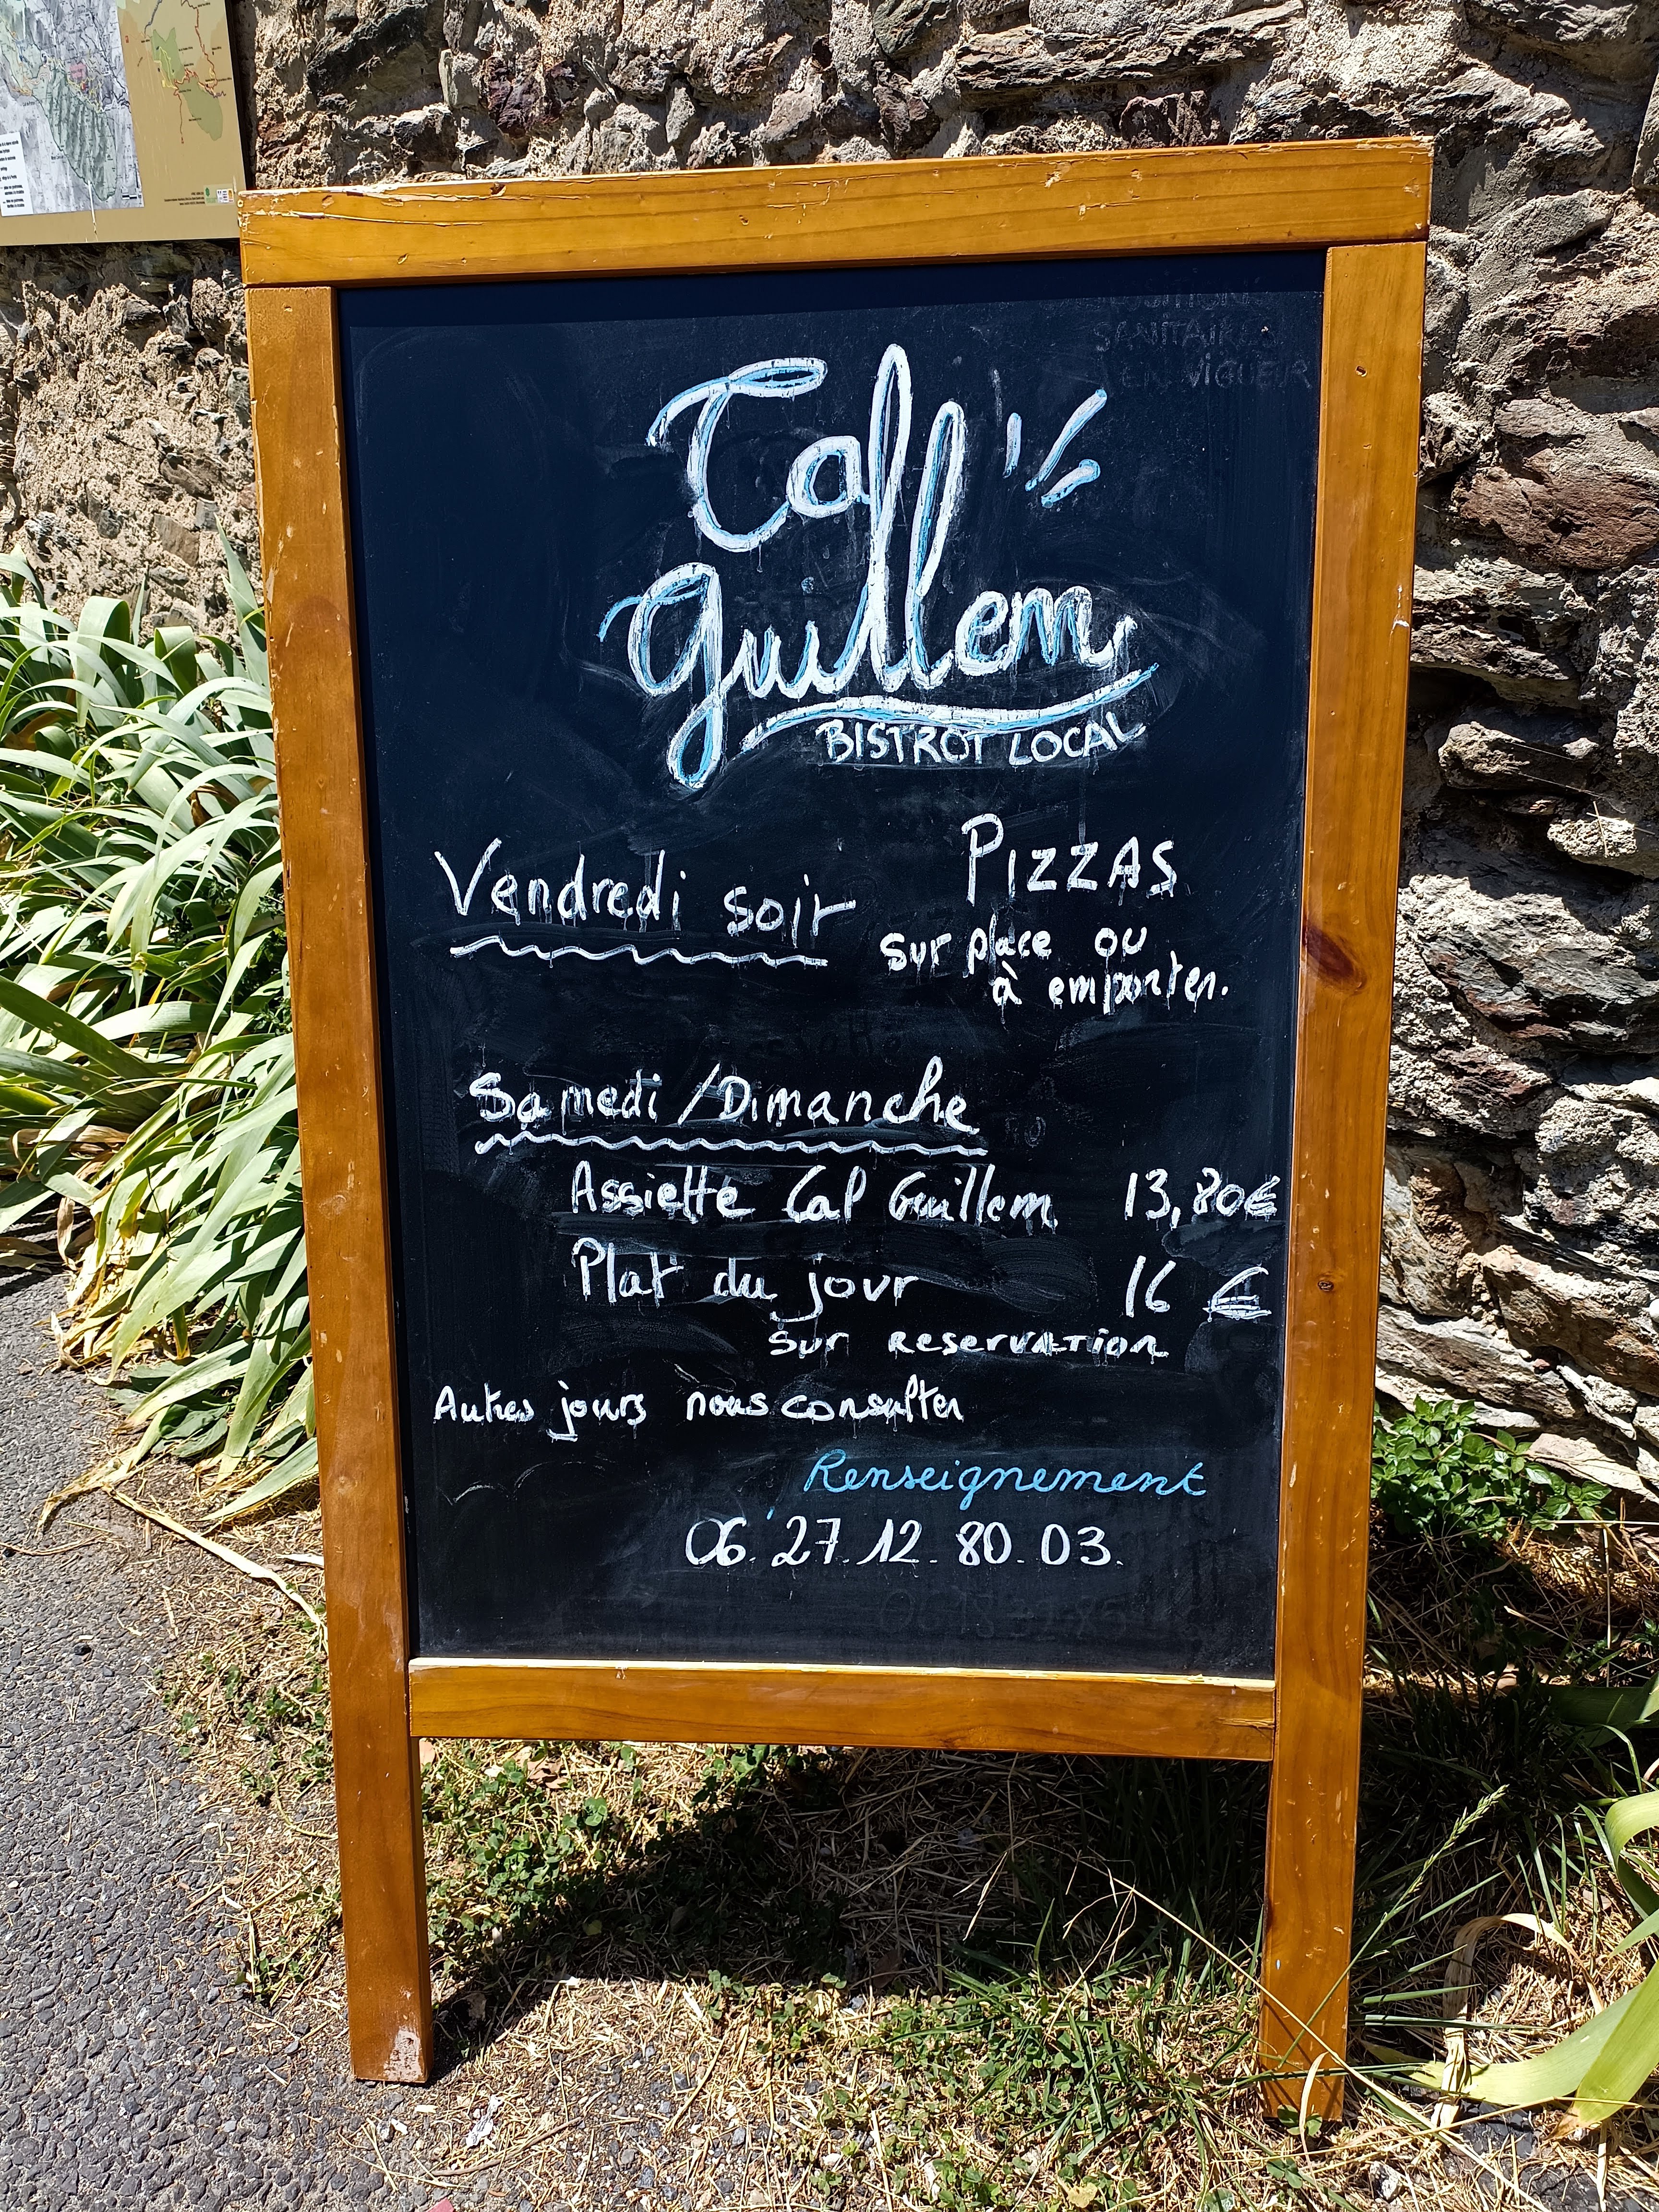 SANITAIRES
EN VIGUEUR
Cal
Guillem
BISTROT LOCAL
Vendredi soir
PIZZAS
sur place ou
à emporter.
Samedi / Dimanche
Assiette Cal Guillem 13,80€
Plat du jour 16 €
sur RESERVATION
Autres jours nous consulter
Renseignement
06.27.12.80.03.